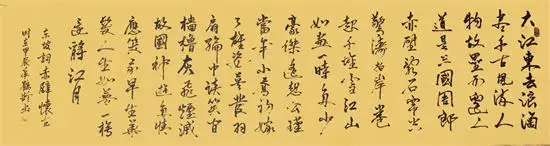 大江東去浪淘
盡千古風流人
物故壘西邊人
道是三國周郎
赤壁亂石穿空
驚濤拍岸卷
起千堆雪江山
如畫一時多少
豪傑遙想公瑾
當年小喬初嫁
了雄姿英發羽
扇綸巾談笑間
檣櫓灰飛煙滅
故國神遊多情
應笑我早生華
發人生如夢一樽
還酹江月
東坡詞赤壁懷古
時在甲辰